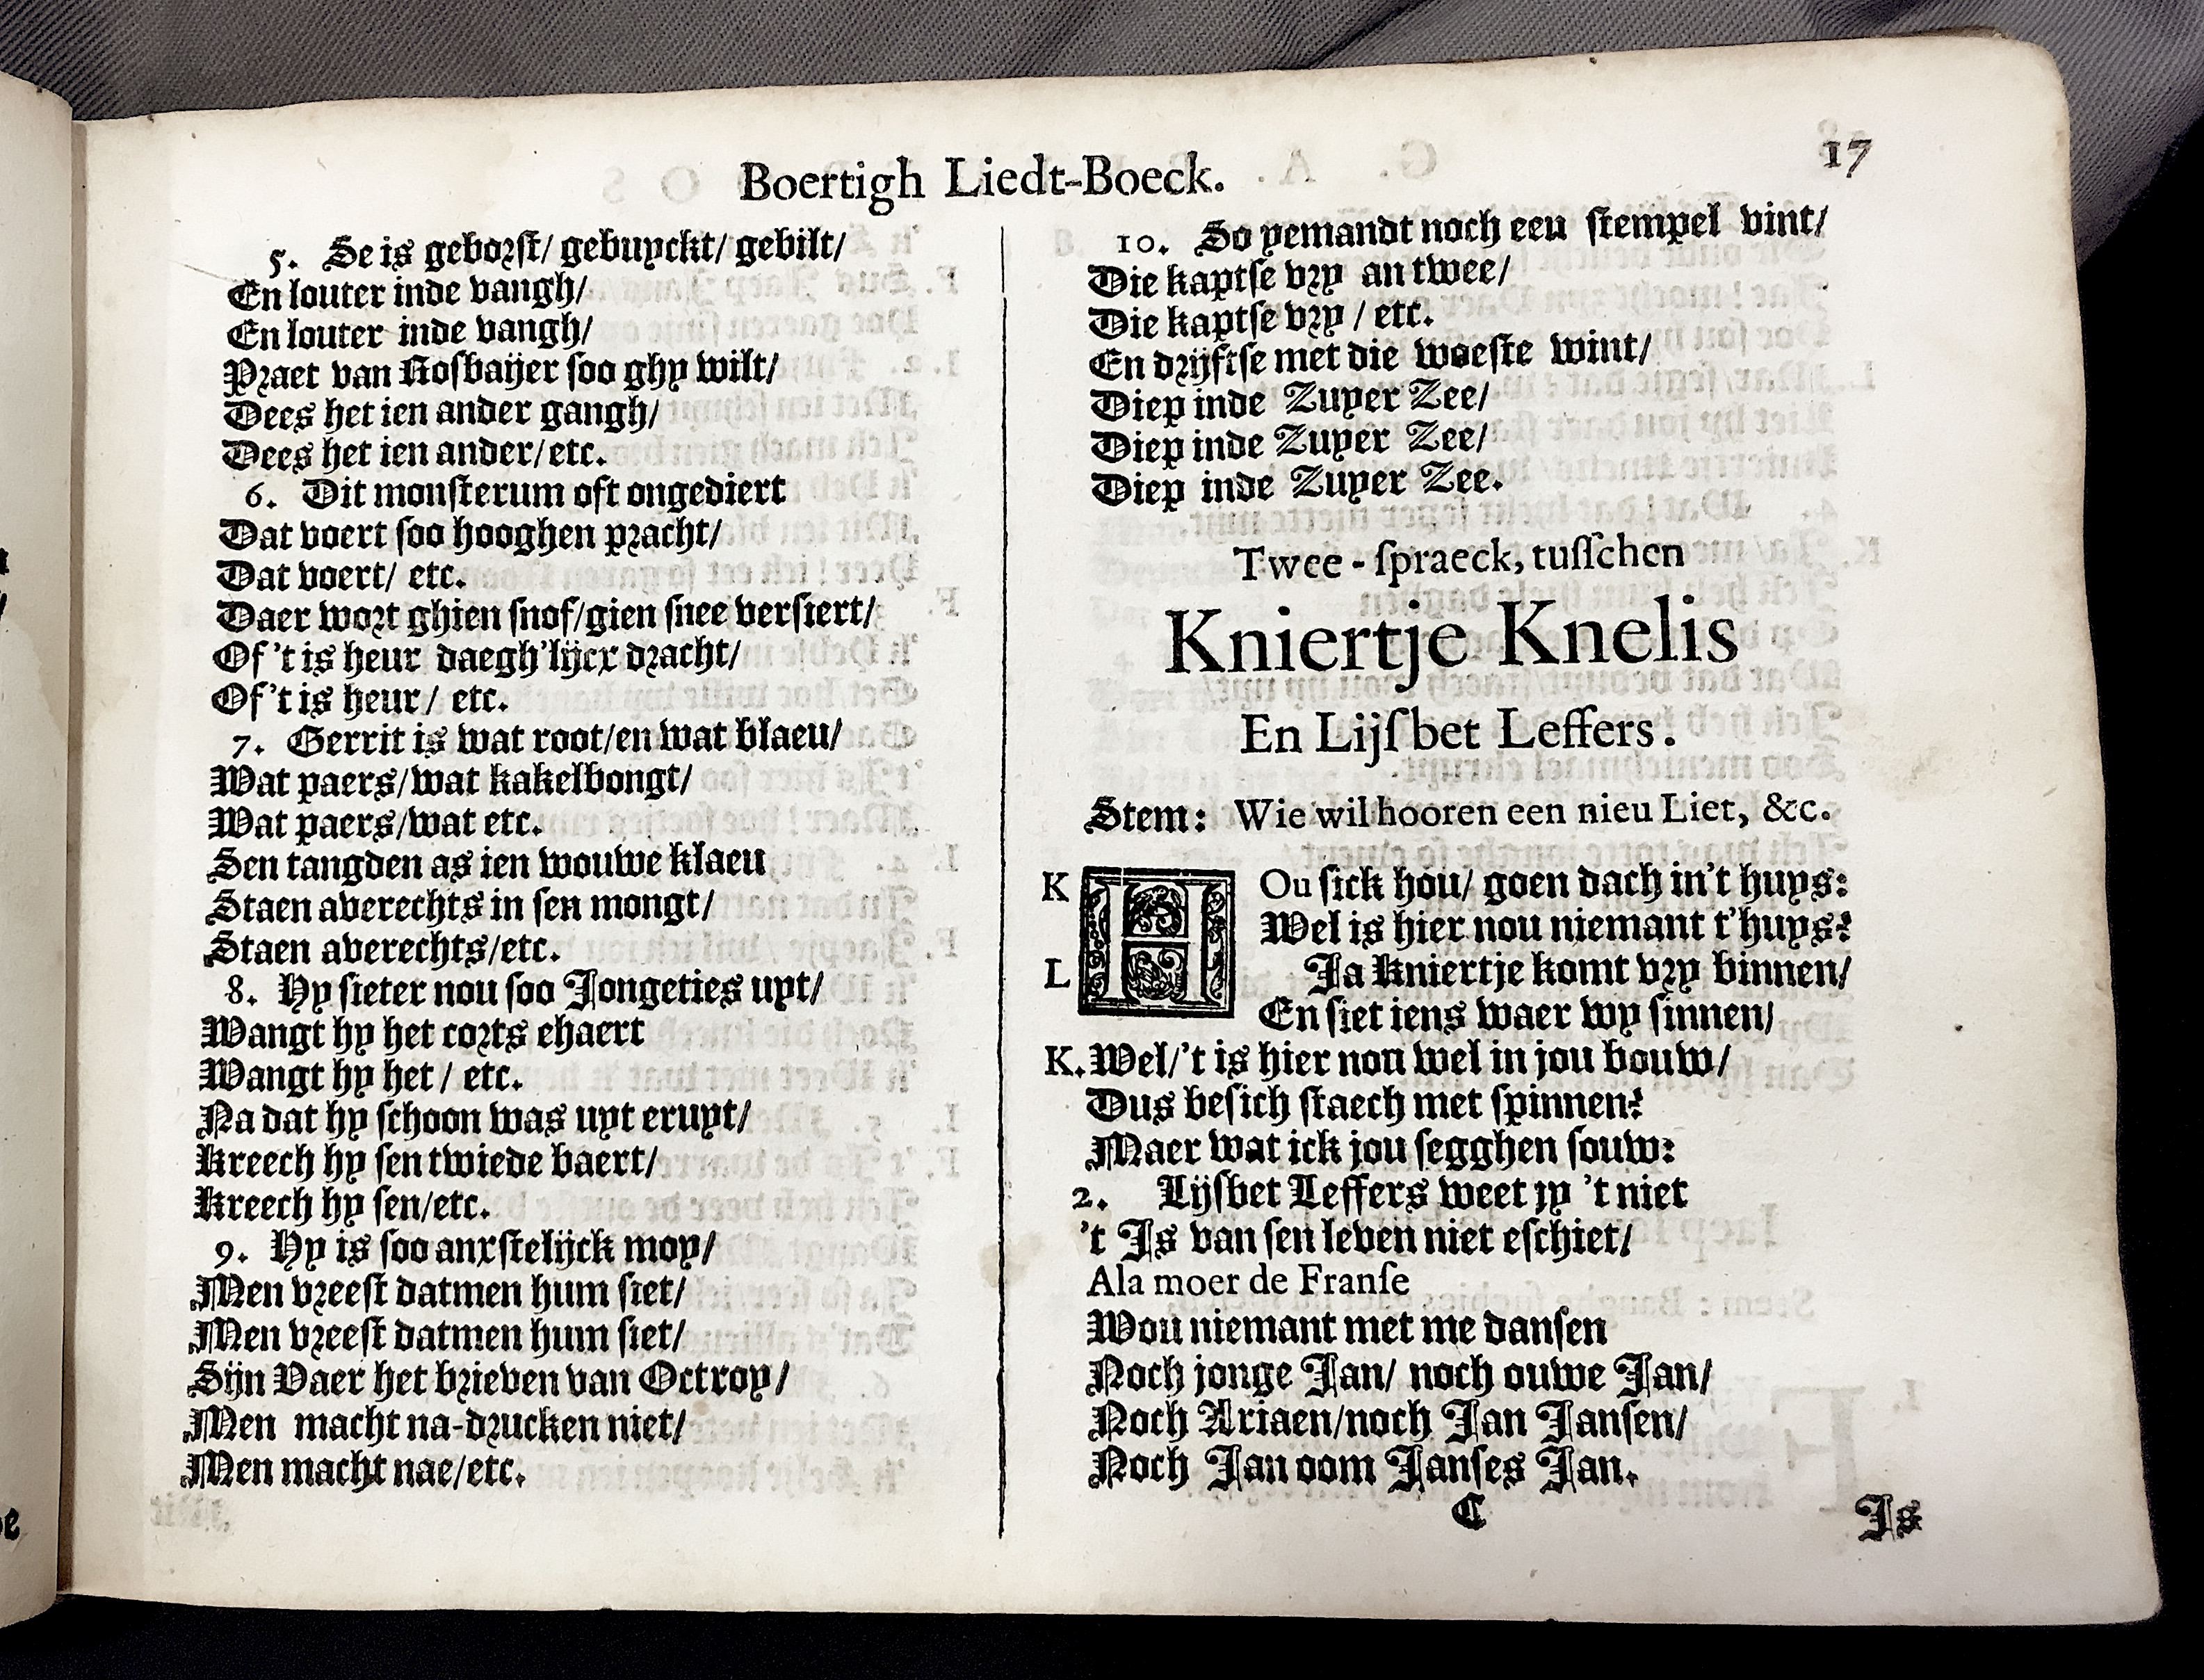 Boertigh Liedt-Boeck.
17
5. Se is geborst/ gebuyckt/ gebilt/
En louter inde vangh/
En louter inde vangh/
Praet van Rosbaijer soo ghy wilt/
Dees het ien ander gangh/
Dees het ien ander/ etc.
6. Dit monsterum oft ongediert
Dat voert soo hooghen pracht/
Dat voert/ etc.
Daer wort ghien snof/gien snee versiert/
Of 't is heur daegh'lijcx dracht/
Of 't is heur/ etc.
7. Gerrit is wat root/en wat blaeu/
Wat paers/wat kakelbongt/
Wat paers/wat etc.
Sen tangden as ien wouwe klaeu
Staen averechts in sen mongt/
Staen averechts/etc.
8. Hy sieter nou soo Jongeties uyt/
Wangt hy het corts ehaert
Wangt hy het / etc.
Na dat hy schoon was uyt eruyt/
Kreech hy sen twiede baert/
Kreech hy sen/etc.
9. Hy is soo anxstelijck moy/
Men vreest datmen hum siet/
Men vreest datmen hum siet/
Sijn Vaer het brieven van Octroy/
Men macht na-drucken niet/
Men macht nae/etc.
10. So yemandt noch eeu stempel vint/
Die kaptse vry an twee/
Die kaptse vry / etc.
En drijftse met die woeste wint/
Diep inde Zuyer Zee/
Diep inde Zuyer Zee/
Diep inde Zuyer Zee.
Twee-spraeck, tusschen
Kniertje Knelis
En Lijsbet Leffers.
Stem: Wie wil hooren een nieu Liet, &c.
K HOu sick hou/ goen dach in't huys:
Wel is hier nou niemant t'huys?
L Ja Kniertje komt vry binnen/
En siet iens waer wy sinnen/
K. Wel/'t is hier nou wel in jou bouw/
Dus besich staech met spinnen?
Maer wat ick jou segghen souw:
2. Lijsbet Leffers weet jy 't niet
't Is van sen leven niet eschiet/
Ala moer de Franse
Wou niemant met me dansen
Noch jonge Jan/ noch ouwe Jan/
Noch Ariaen/noch Jan Jansen/
Noch Jan oom Janses Jan.
C
Is